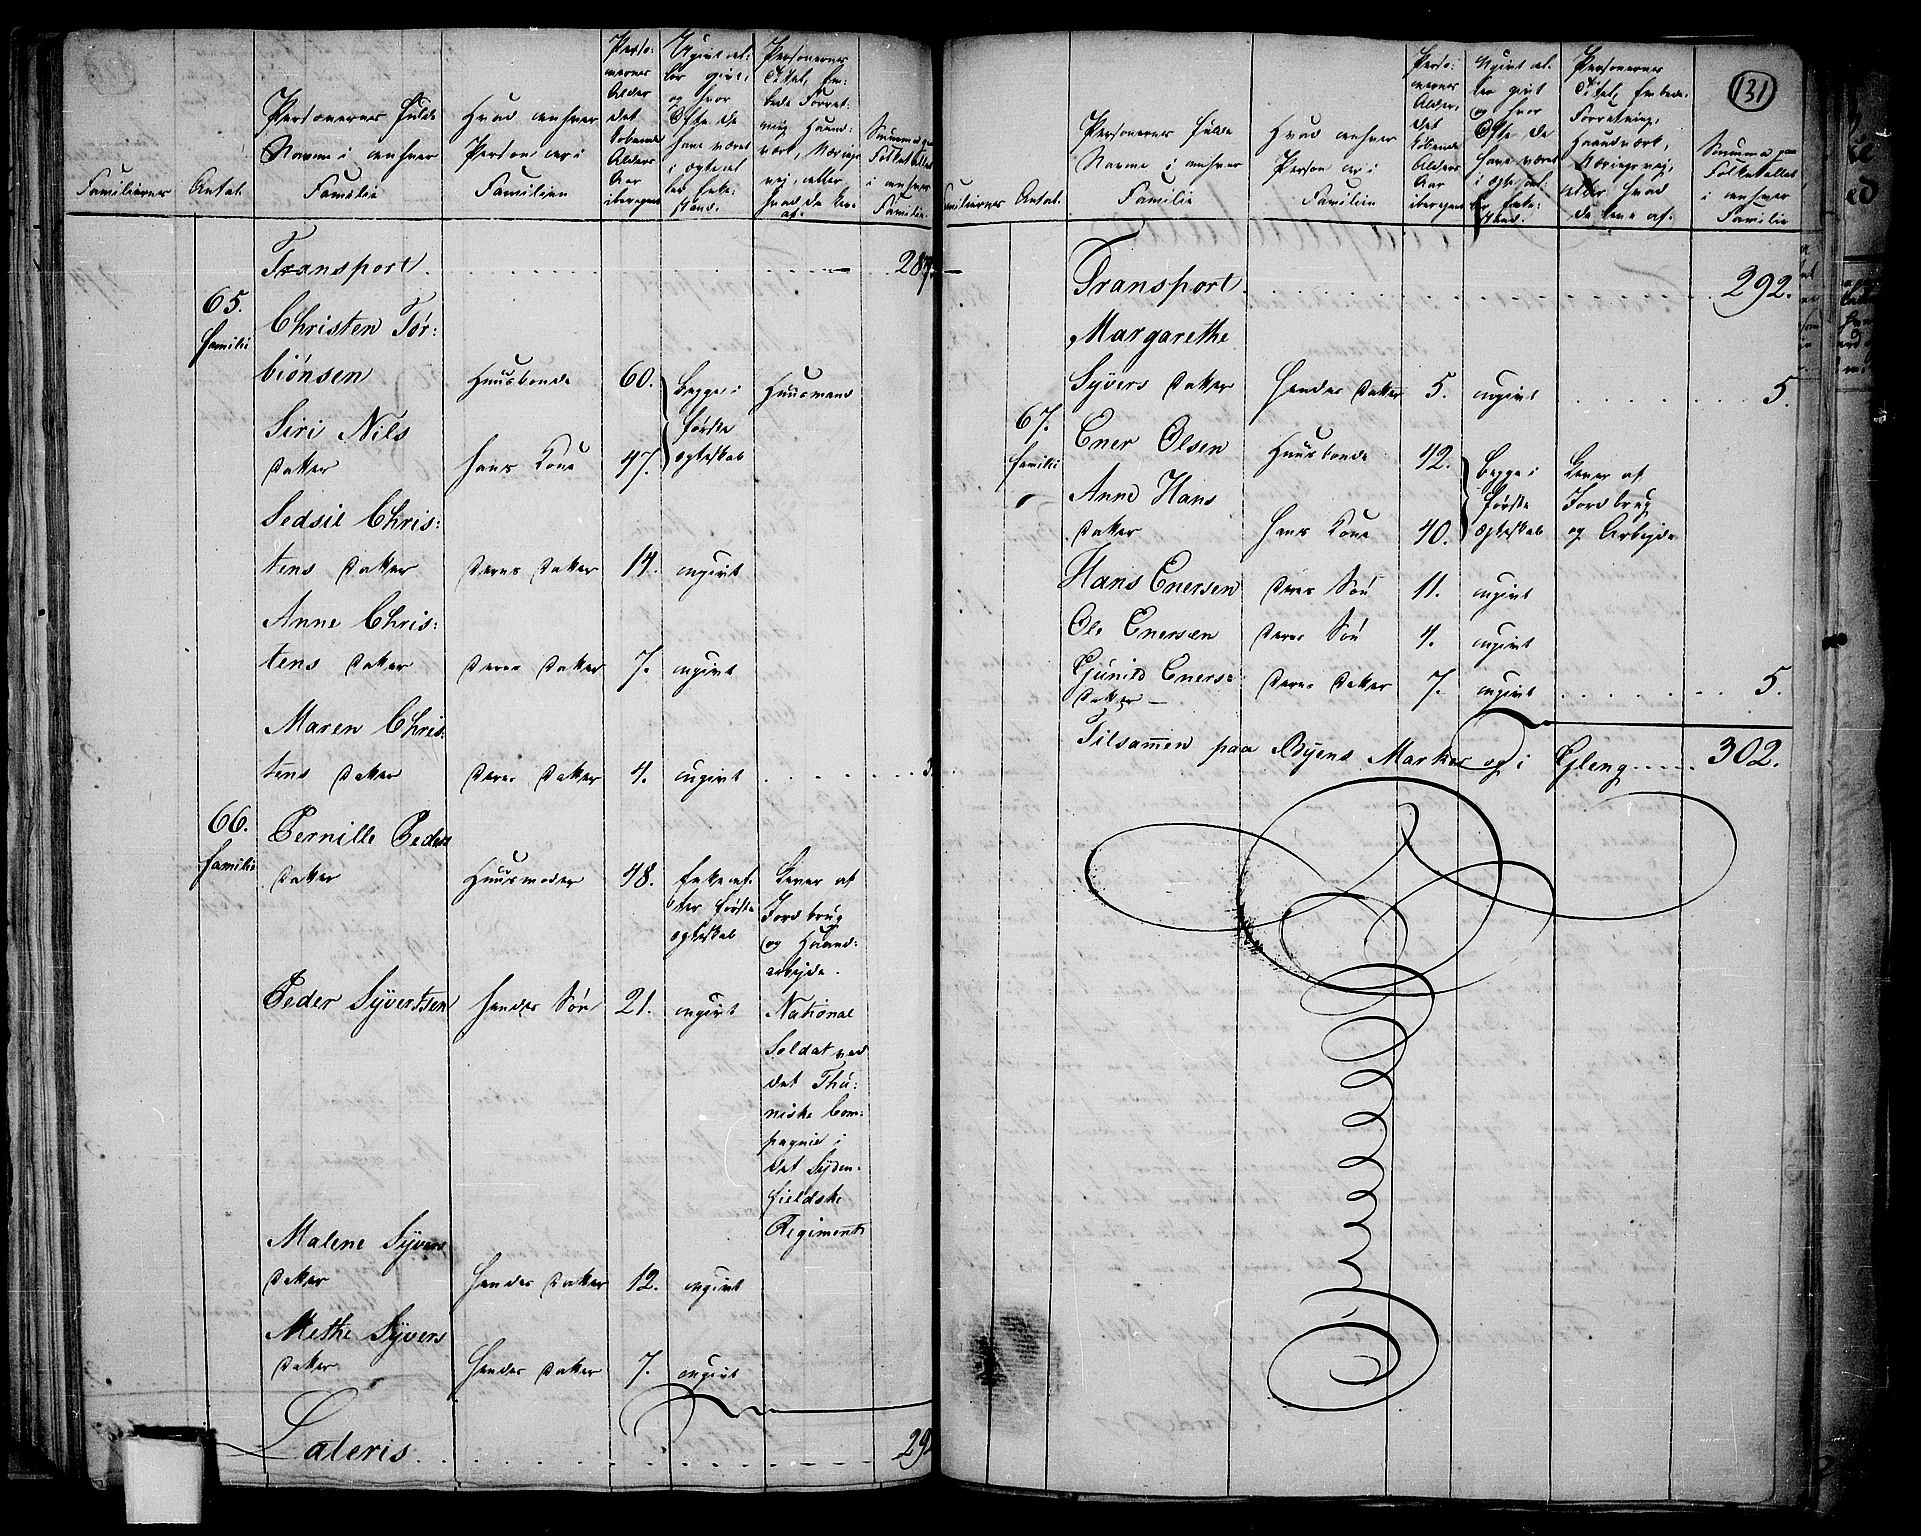 131
Familiernes
Antal
Personernes fulde
Navne i enhver
Familie
Hvad enhver
Person er i
Familien
Perso-
nernes
Alder
det
løbende
Alders
Aar
iberegnet
Ugivt el-
ler givt,
og hvor
Ofte de
have været
i ægte el-
ler Enke-
stand.
Personernes
Titel, Em-
bede Forret-
ning Haand-
værk, Nærings-
vej, eller
hvad de leve
af.
Summa paa
Folketallet
i enhver
Familie
Transport 287
65.
familie
Christen Tor-
biönsen Huusbonde 60. Begge i Huusmand
første
ægteskab
Siri Nils
Datter hans Kone 47.
Sedsil Chris-
tens Datter deres Datter 14. ugivt
Anne Chris-
tens Datter deres Datter 7. ugivt
Maren Chris-
tens Datter deres Datter 4. ugivt 5
66.
familie
Pernille Peders
Datter Huusmoder 48. Enke ef-
ter første
ægteskab
Lever af
Jordbrug
og Haand-
arbejde.
Peder Syvertsen hendes Søn 21. ugivt National
Soldat ved
det Thu-
niske Com-
pagnie i
det Syden-
fieldske
Regiment
Malene Syvers
Datter hendes Datter 12. ugivt
Methe Syvers
Datter hendes Datter 7. ugivt
Lateris 29
Familiernes
Antal
Personernes fulde
Navne i enhver
Familie
Hvad enhver
Person er i
Familien
Perso-
nernes
Alder,
det
løbende
Alders
Aar
iberegnet
Ugivt el-
ler givt
og hvor
Ofte de
have været
i ægte el-
ler Enke-
stand.
Personernes
Titel, Embede,
Forretning,
Haandværk,
Næringsvej,
eller hvad
de leve af.
Summa paa
Folketallet
i enhver
Familie
Transport 292.
Margarethe
Syvers Datter hendes Datter 5. ugivt 5.
67.
familie
Ener Olsen Huusbonde 42. Begge i
første
ægteskab
Lever af
Jordbrug
og Arbejde
Anne Hans
Datter hans Kone 40.
Hans Enersen deres Søn 11. ugivt
Ole Enersen deres Søn 4. ugivt
Gjunild Eners-
Datter deres Datter 7. ugivt 5.
Tilsamen paa Byens Marker og i Gleng 302.